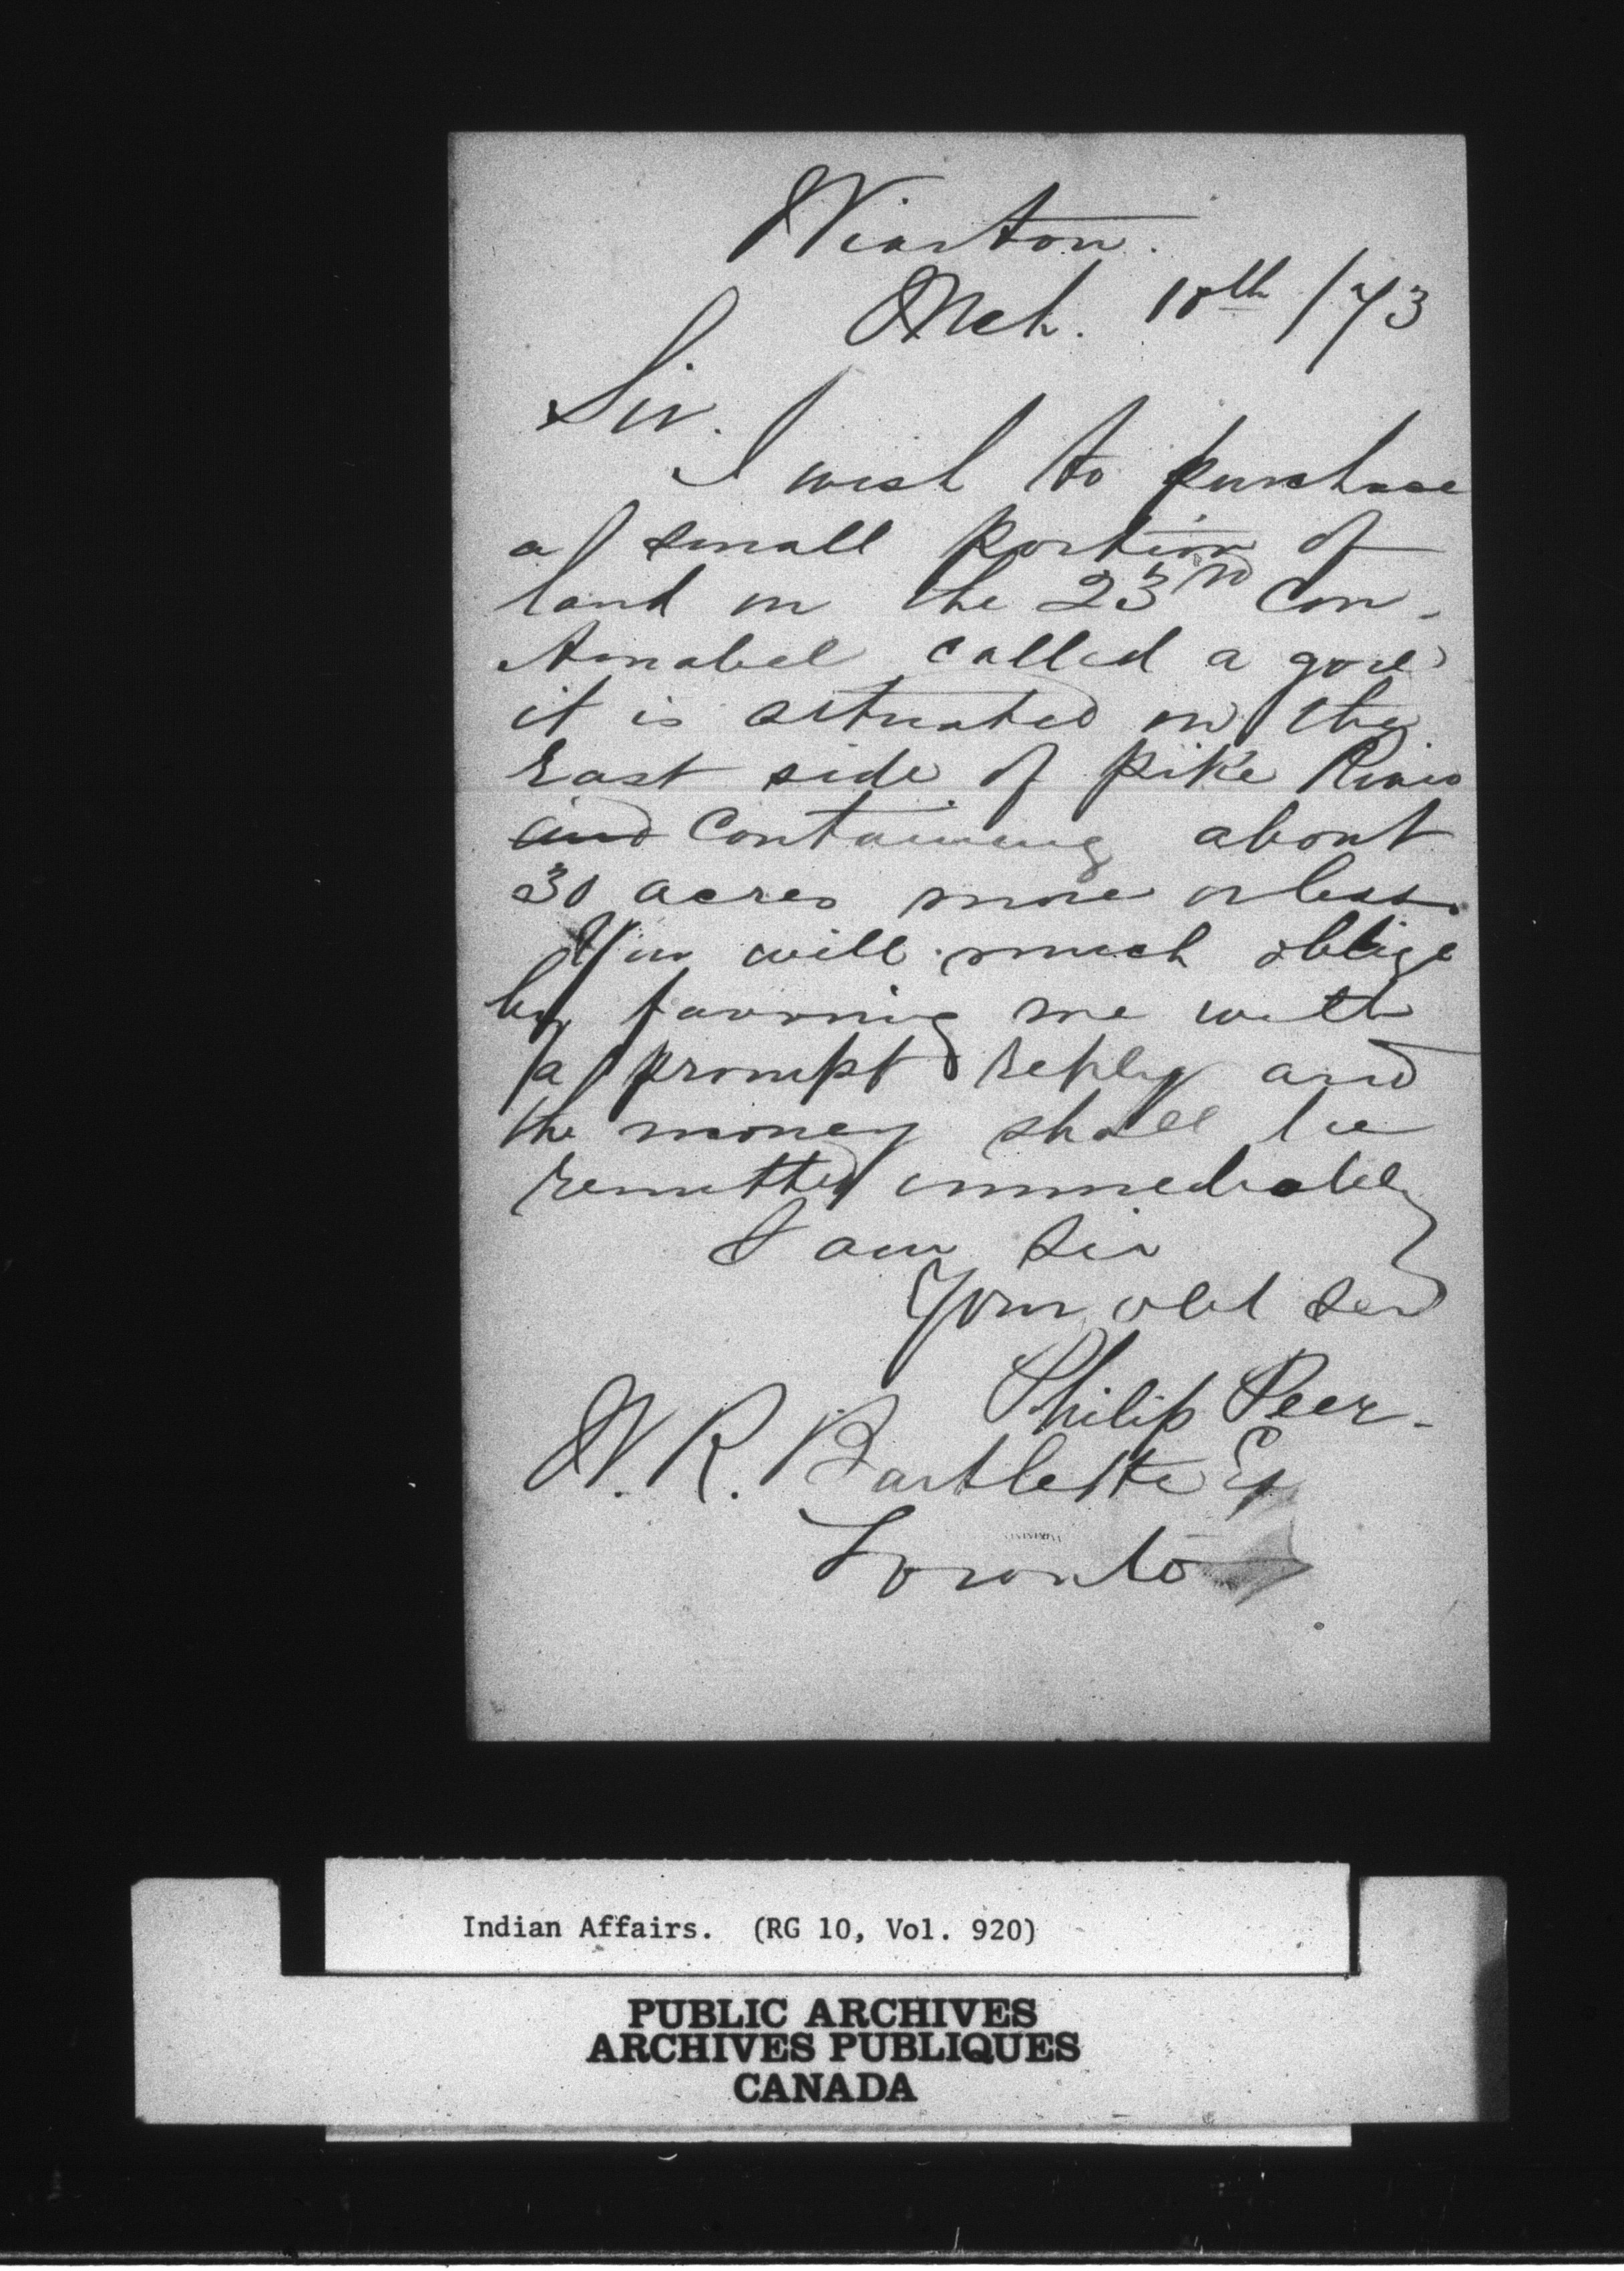 Wiarton.
Mch. 10th /73
Sir.
I wish to purchase
a small portion of
land in the 23rd Con.
Amabel called a gore
it is situated on the
East side of pike River
and Containing about
30 acres more or less.
You will much oblige
by favoring me with
a prompt reply and
the money shall be
remitted immediately
I am Sir
Your obt ser
Philip Peer.
W. R. Bartlette Esq
Toronto
Indian Affairs. (RG 10, Vol. 920)
PUBLIC ARCHIVES
ARCHIVES PUBLIQUES
CANADA